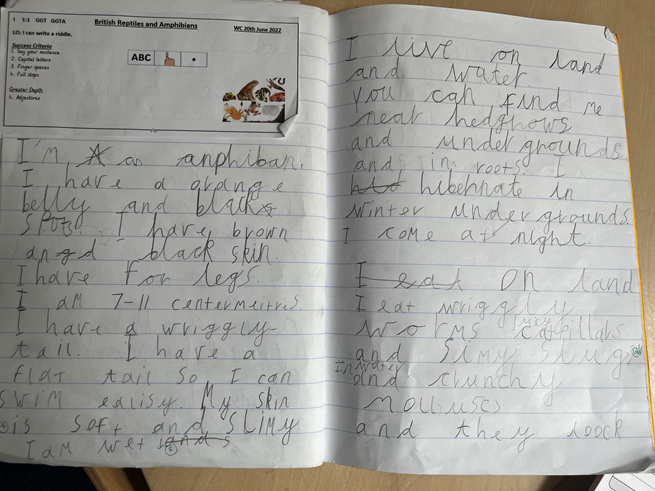 I 1:1 GGT GGTA
British Reptiles and Amphibians
WC 20th June 2022
LO: I can write a riddle.
Success Criteria
1. Say your sentence
2. Capital letters
3. Finger spaces
4. Full stops
Greater Depth
4. Adjectives
ABC
I'm an anphiban.
I have a orange
belly and black
spots. I have brown
and black skin.
I have for legs.
I am 7-11 centermeitres.
I have a wriggly
tail. I have a
flat tail so I can
swim ealisy. My skin
is soft and slimy
I am wet ands
I live on land
and water.
You can find me
near hedghows
and undergrounds
and in roots. I
hibehnate in
winter undergrounds.
I come at night.
I eat on land
I eat wriggly
worms
and slimy slugs
In water
and crunchy
molluscs
and they loock